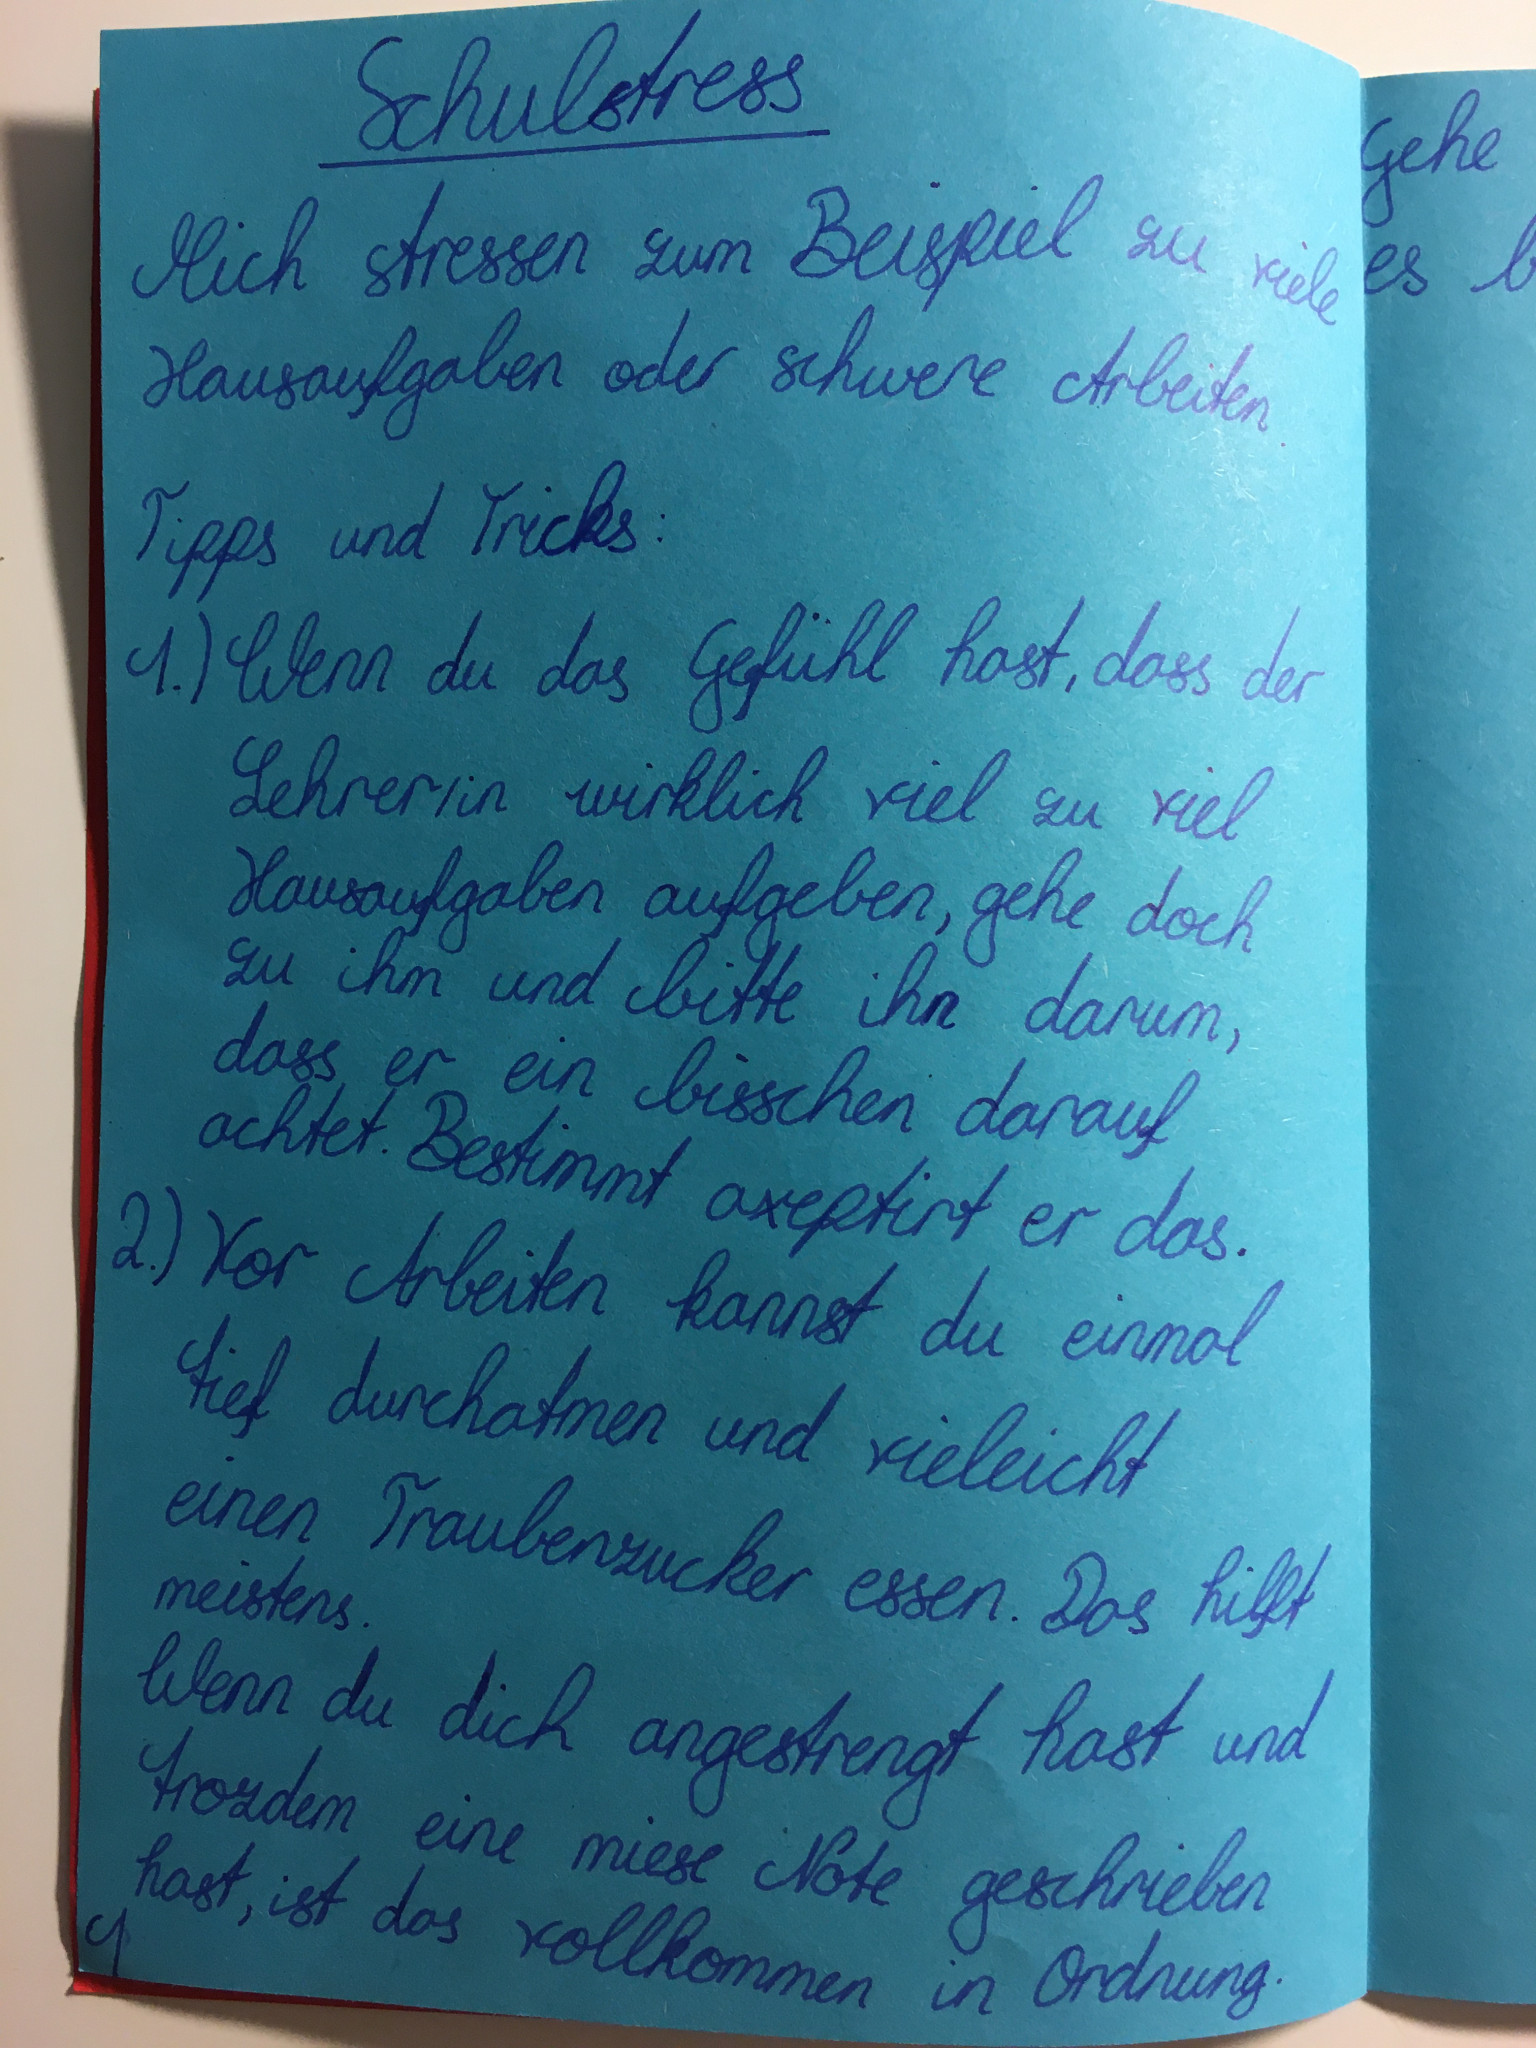 Schulstress
Mich stressen zum Beispiel zu viele
Hausaufgaben oder schwere Arbeiten.
Tipps und Tricks:
1.) Wenn du das Gefühl hast, dass der
Lehrer/in wirklich viel zu viel
Hausaufgaben aufgeben, gehe doch
zu ihm und bitte ihn darum,
dass er ein bisschen darauf
achtet. Bestimmt axeptirt er das.
2.) Vor Arbeiten kannst du einmal
tief durchatmen und vieleicht
einen Traubenzucker essen. Das hilft
meistens.
Wenn du dich angestrengt hast und
trozdem eine miese Note geschrieben
hast, ist das vollkommen in Ordnung.
1
Gehe
es